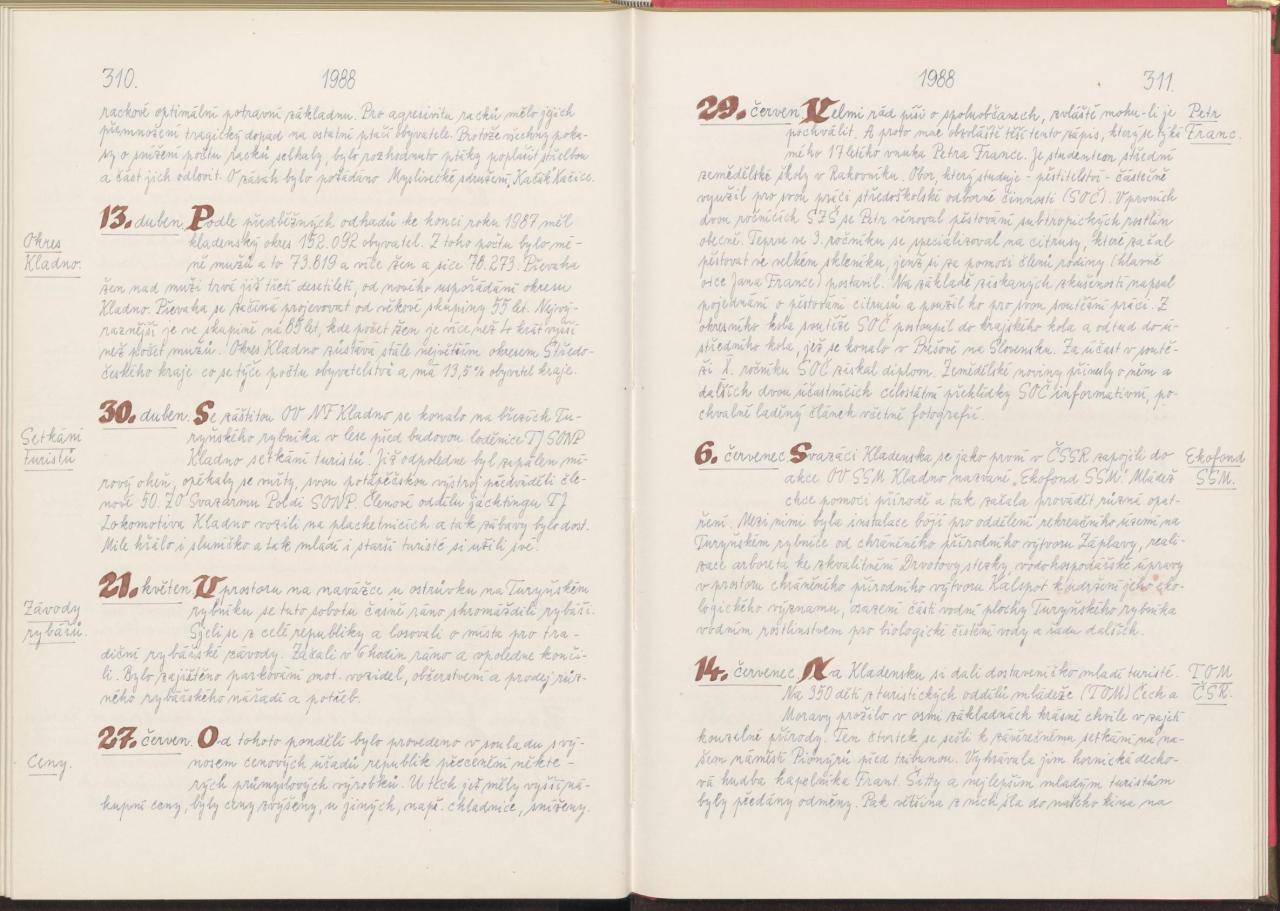 310. 1988
rackové optimální potravní základnu. Pro agresivitu racků mělo jejich
přemnožení tragický dopad na ostatní ptačí obyvatele. Protože všechny poku-
sy o snížení počtu racků selhaly, bylo rozhodnuto ptáky poplašit střelbou
a část jich odlovit. O zásah bylo požádáno Myslivecké sdružení, Kačák Kačice.
Okres
Kladno.
13. duben. Podle předběžných odhadů ke konci roku 1987 měl
kladenský okres 152.092 obyvatel. Z toho počtu bylo mé-
ně mužů a to 73.819 a více žen a sice 78.273. Převaha
žen nad muži trvá již třetí desetiletí, od nového uspořádání okresu
Kladno. Převaha se začíná projevovat od věkové skupiny 55 let. Nejvý-
raznější je ve skupině na 85 let, kde počet žen je více, než 4 krát vyšší
než počet mužů. Okres Kladno zůstává stále největším okresem Středo-
českého kraje co se týče počtu obyvatelstva a má 13,5% obyvatel kraje.
Setkání
turistů
30. duben. Se záštitou OV NF Kladno se konalo na březích Tu-
ryňského rybníka v lese před budovou loděnice TJ SONP
Kladno setkání turistů. Již odpoledne byl zapálen mí-
rový oheň, opékaly se vuřty, svou potápěčskou výstroj předváděli čle-
nové 50. ZO Svazarmu Poldi SONP. Členové oddílu jachtingu TJ
Lokomotiva Kladno vozili na plachetnicích a tak zábavy bylo dost.
Mile hřálo i sluníčko a tak mladí i starší turisté si užili své.
Závody
rybářů.
21. květen. V prostoru na navážce u ostrůvku na Turyňském
rybníku se tuto sobotu časně ráno shromáždili rybáři.
Sjeli se z celé republiky a losovali o místa pro tra-
diční rybářské závody. Začali v 6 hodin ráno a v poledne konči-
li. Bylo zajištěno parkování mot. vozidel, občerstvení a prodej růz-
ného rybářského nářadí a potřeb.
Ceny.
27. červen. Od tohoto pondělí bylo provedeno v souladu s vý-
nosem cenových úřadů republik přecenění někte-
rých průmyslových výrobků. U těch jež měly vyšší ná-
kupní ceny, byly ceny zvýšeny, u jiných, např. chladnice, sníženy.
1988 311.
29. červen. Velmi rád píši o spoluobčanech, zvláště mohu-li je
pochválit. A proto mne obzvláště těší tento zápis, který se týká
mého 17 letého vnuka Petra France. Je studentem střední
Petr
Franc.
zemědělské školy v Rakovníku. Obor, který studuje - pěstitelství - částečně
využil pro svou práci středoškolské odborné činnosti (SOČ). V prvních
dvou ročnících SZŠ se Petr věnoval pěstování subtropických rostlin
obecně. Teprve ve 3. ročníku se specializoval na citrusy, které začal
pěstovat ve velkém skleníku, jenž si za pomoci členů rodiny (hlavně
otce Jana France) postavil. Na základě získaných zkušeností napsal
pojednání o pěstování citrusů a použil ho pro svou soutěžní práci. Z
okresního kola soutěže SOČ postoupil do krajského kola a odtud do ú-
středního kola, jež se konalo v Prešově na Slovensku. Za účast v soutě-
ži X. ročníku SOČ získal diplom. Zemědělské noviny přinesly o něm a
dalších dvou účastnících celostátní přehlídky SOČ informativní, po-
chvalně laděný článek včetně fotografií.
6. červenec Svazáci Kladenska se jako první v ČSSR zapojili do
akce OV SSM Kladno nazvané „Ekofond SSM.“ Mládež
chce pomoci přírodě a tak začala provádět různá opat-
Ekofond
SSM.
ření. Mezi nimi byla instalace bójí pro oddělení rekreačního území na
Turyňském rybníce od chráněného přírodního výtvoru Záplavy, reali-
zace arboreta ke zkvalitnění Drvotovy stezky, vodohospodářské úpravy
v prostoru chráněného přírodního výtvoru Kalspot k udržení jeho eko-
logického významu, osazení části vodní plochy Turyňského rybníka
vodním rostlinstvem pro biologické čistění vody a řadu dalších.
14. červenec Na Kladensku si dali dostaveníčko mladí turisté.
Na 350 dětí z turistických oddílů mládeže (TOM) Čech a
Moravy prožilo v osmi základnách krásné chvíle v zajetí
TOM
ČSR.
kouzelné přírody. Ten čtvrtek se sešli k závěrečnému setkání na na-
šem náměstí Pionýrů před tribunou. Vyhrávala jim hornická decho-
vá hudba kapelníka Frant. Šatty a nejlepším mladým turistům
byly předány odměny. Pak většina z nich šla do našeho kina na